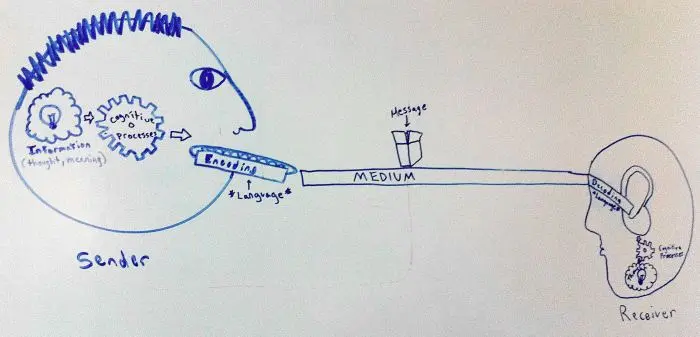 Information
(thought, meaning)
Cognitive
Processes
Encoding
*Language*
Sender
Message
MEDIUM
Decoding
*Language*
Cognitive
Processes
Receiver